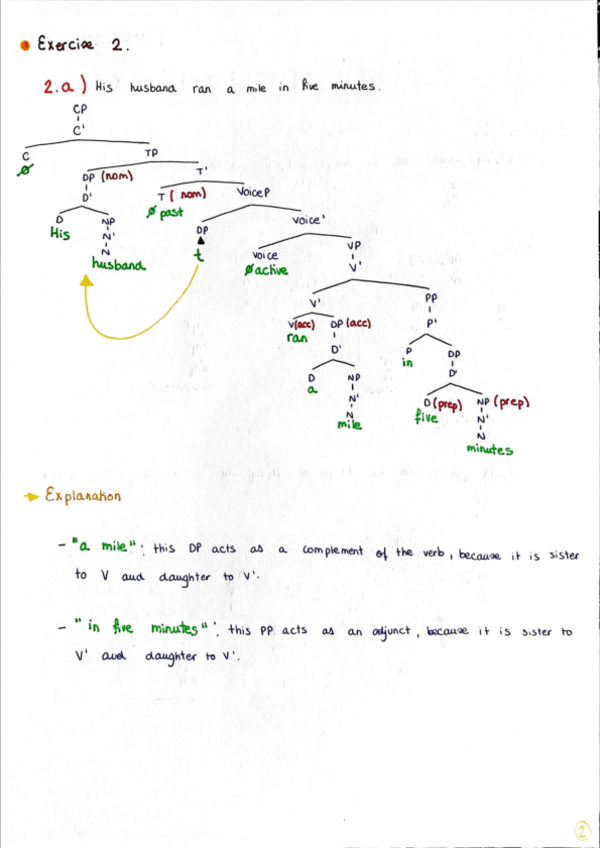 Exercise 2.
2.a) His husband ran a mile in five minutes.
CP
C'
C TP
Ø
DP (nom) T'
D' T (nom) VoiceP
Ø past
D NP DP Voice'
His N' t
N
husband
Voice VP
Ø active V'
V' PP
V(acc) DP (acc) P'
ran
D' P DP
in
D NP D'
a N' D (prep) NP (prep)
N five N'
mile N
minutes
Explanation
- "a mile": this DP acts as a complement of the verb, because it is sister
to V and daughter to V'.
- "in five minutes": this PP acts as an adjunct, because it is sister to
V' and daughter to V'.
2